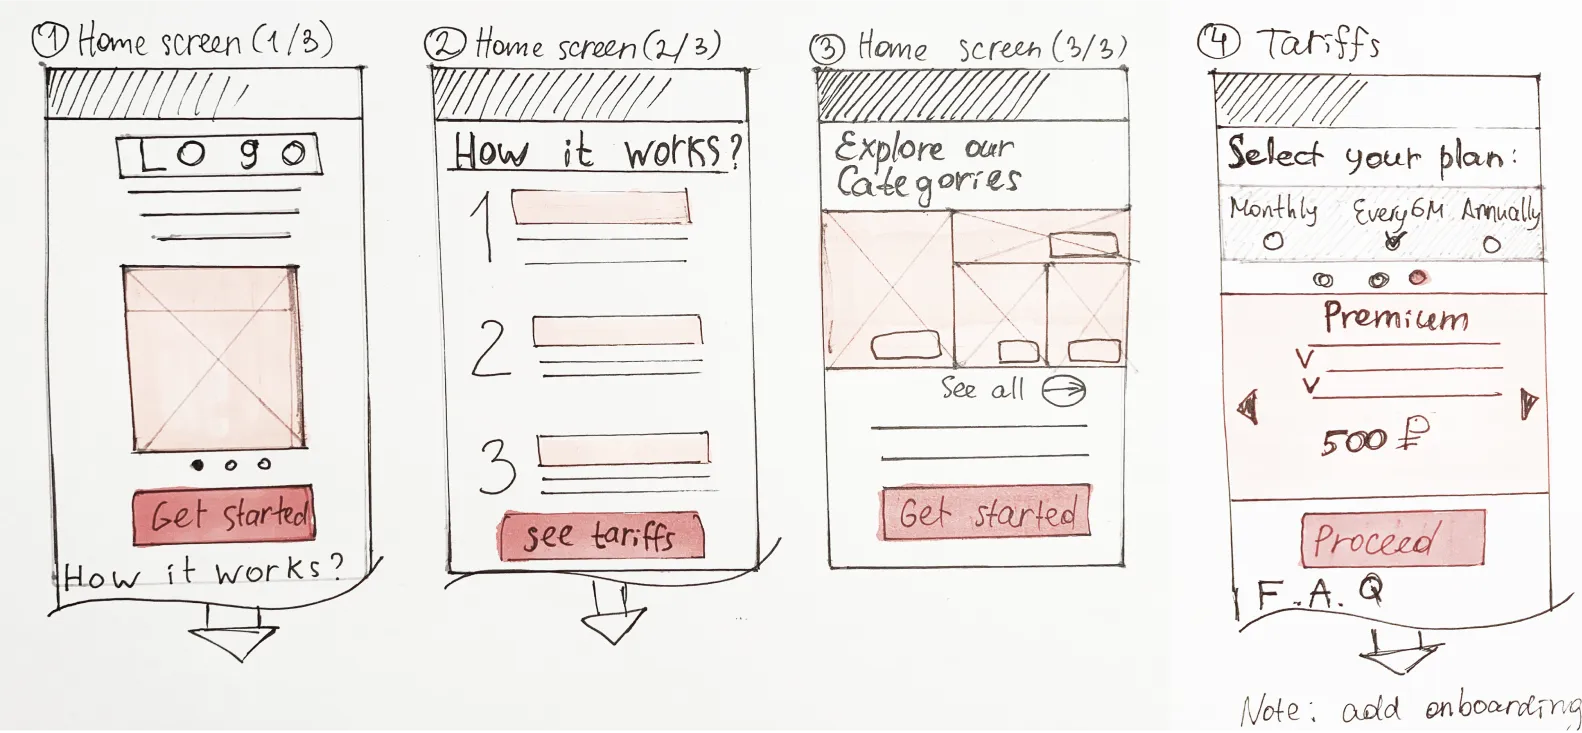 1 Home screen (1/3)
Logo
Get started
How it works?
2 Home screen (2/3)
How it works?
1
2
3
see tariffs
3 Home screen (3/3)
Explore our
Categories
See all
Get started
4 Tariffs
Select your plan:
Monthly Every 6M Annually
Premium
500 ₽
Proceed
F.A.Q
Note: add onboarding